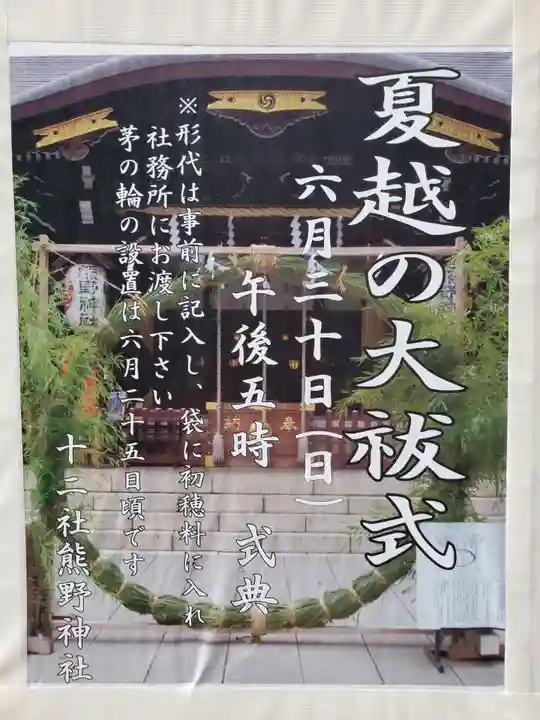 夏越の大祓式
六月三十日(日)
午後五時 式典
※形代は事前に記入し、袋に初穂料に入れ
社務所にお渡し下さい
茅の輪の設置は六月二十五日頃です
十二社熊野神社
熊野神社
奉
納